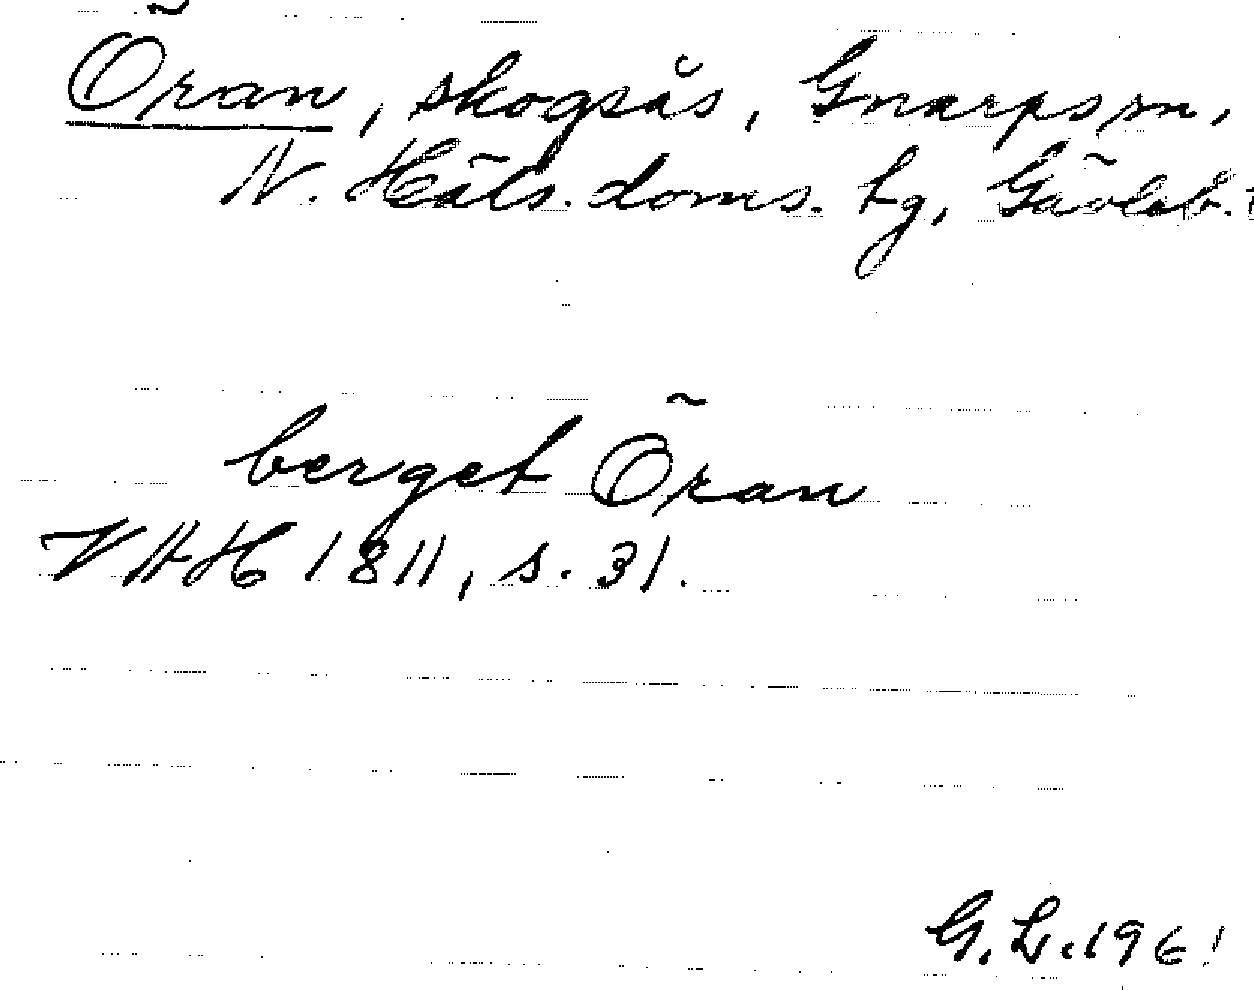 Öran, skogsås, Gnarps sn,
N. Häls. doms. tg, Gävleb. l
berget Öran
VHAH 1811, s. 31.
G. L. 1961